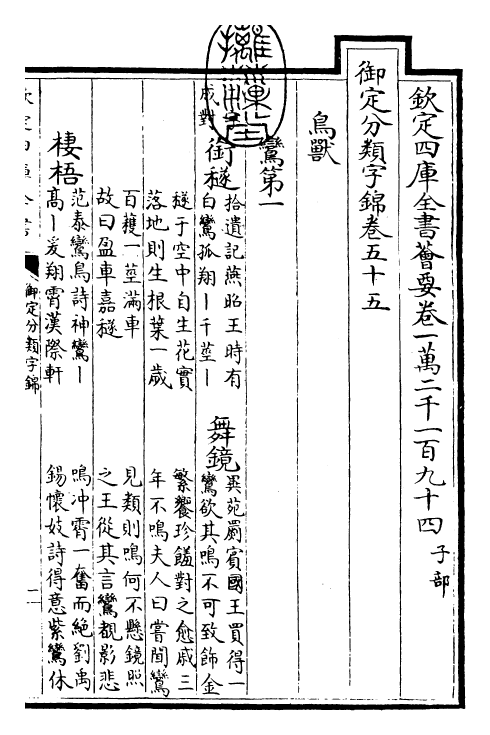 欽定四庫全書薈要卷一萬二千一百九十四 子部
御定分類字錦卷五十五
鳥獸
鸞第一
成對
銜穟 拾遺記燕昭王時有
白鸞孤翔丨千莖丨
穟于空中自生花實
落地則生根葉一歲
百穫一莖滿車
故曰盈車嘉穟
舞鏡 異苑罽賓國王買得一
鸞欲其鳴不可致飾金
繁饗珍饈對之愈戚三
年不鳴夫人曰嘗聞鸞
見類則鳴何不懸鏡照
之王從其言鸞覩影悲
鳴冲霄一奮而絶劉禹
錫懷妓詩得意紫鸞休
棲梧 范泰鸞鳥詩神鸞丨
髙丨爰翔霄漢際軒
御定分類字錦